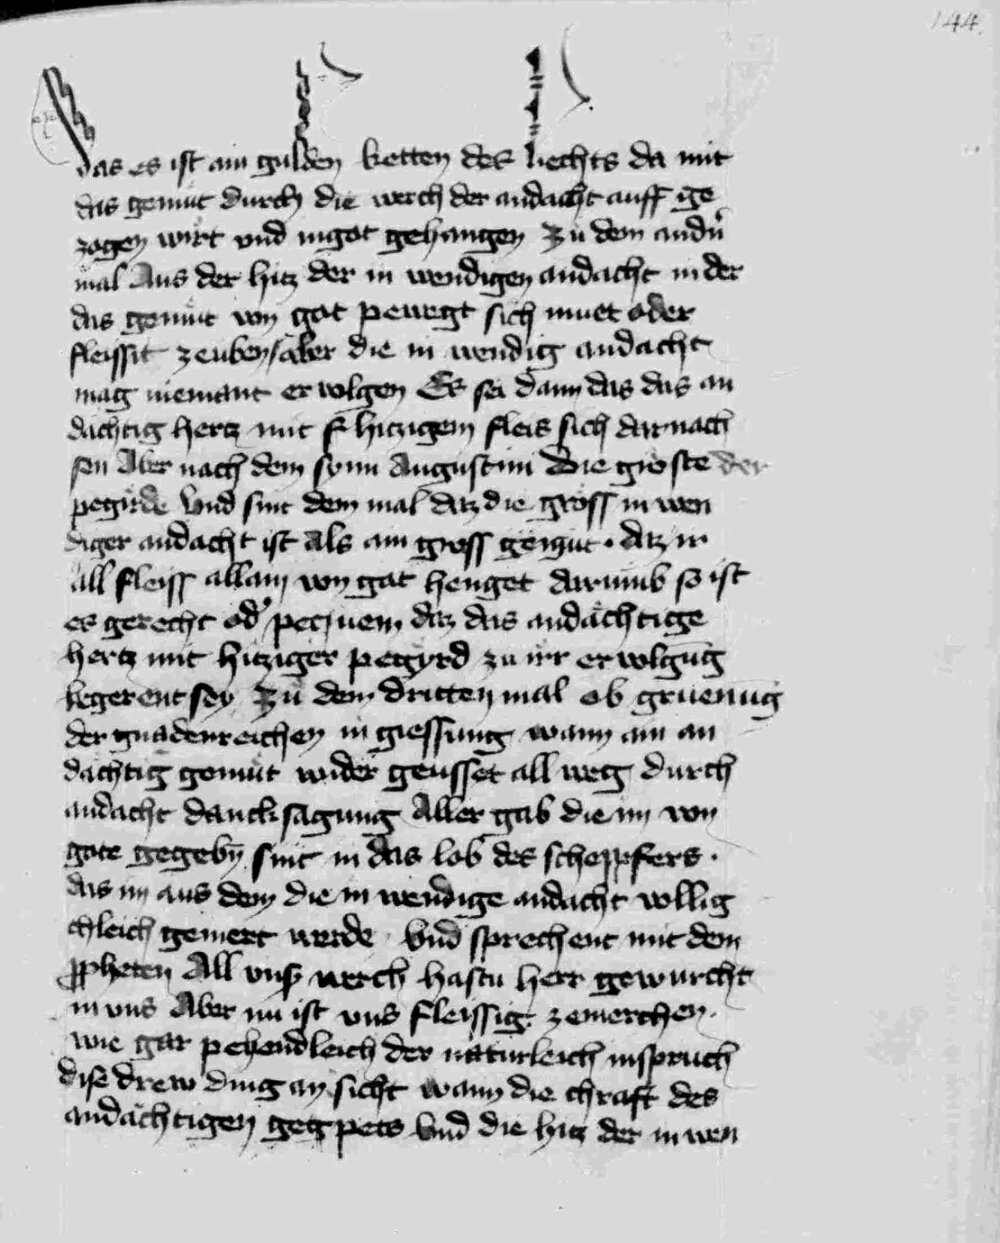 144.
das es ist ain gulden ketten des liechts da mit
das gemüt durch die werch der andacht auff ge
zogen wirt vnd in got gehangen Zu dem andn̄
mal Aus der hitz der in wendigen andacht in der
das gemüt von got pewegt sich muet oder
fleissit zeuben / aber die in wendig andacht
mag niemant er volgen Es sei dann das das an
dächtig hertz mit hitzigem fleis sich dar nach
sen Aber nach dem synn Augustini Die gröste der
pegirde Vnd sint dem mal daz die gröss in wen
diger andacht ist als ain gross gemüt · daz ir
all fleiss allain von got henget darumb so ist
es gerecht od' daz das andächtige
hertz mit hitziger pegyrd zu irr er volgūg
begerent sey Zu dem dritten mal ob gruenūg
der gnadenreichen in giessung wann ain an
dächtig gemüt wider geusset all weg durch
andacht danck sagung Aller gab die im von
gote gegebn̄ sint in das lob des scheppfers ·
das im aus dem die in wendige andacht völlig
chleich gemert werde · Vnd sprechent mit dem
ꝓpheten All vnsꝰ werch hastu herr gewurcht
in vns Aber nu ist vns fleissig zemerchen ·
wie gar pehendleich der naturleich inspruch
dise drew ding an sicht wann die chraft des
andächtigen gepets Vnd die hitz der in wen